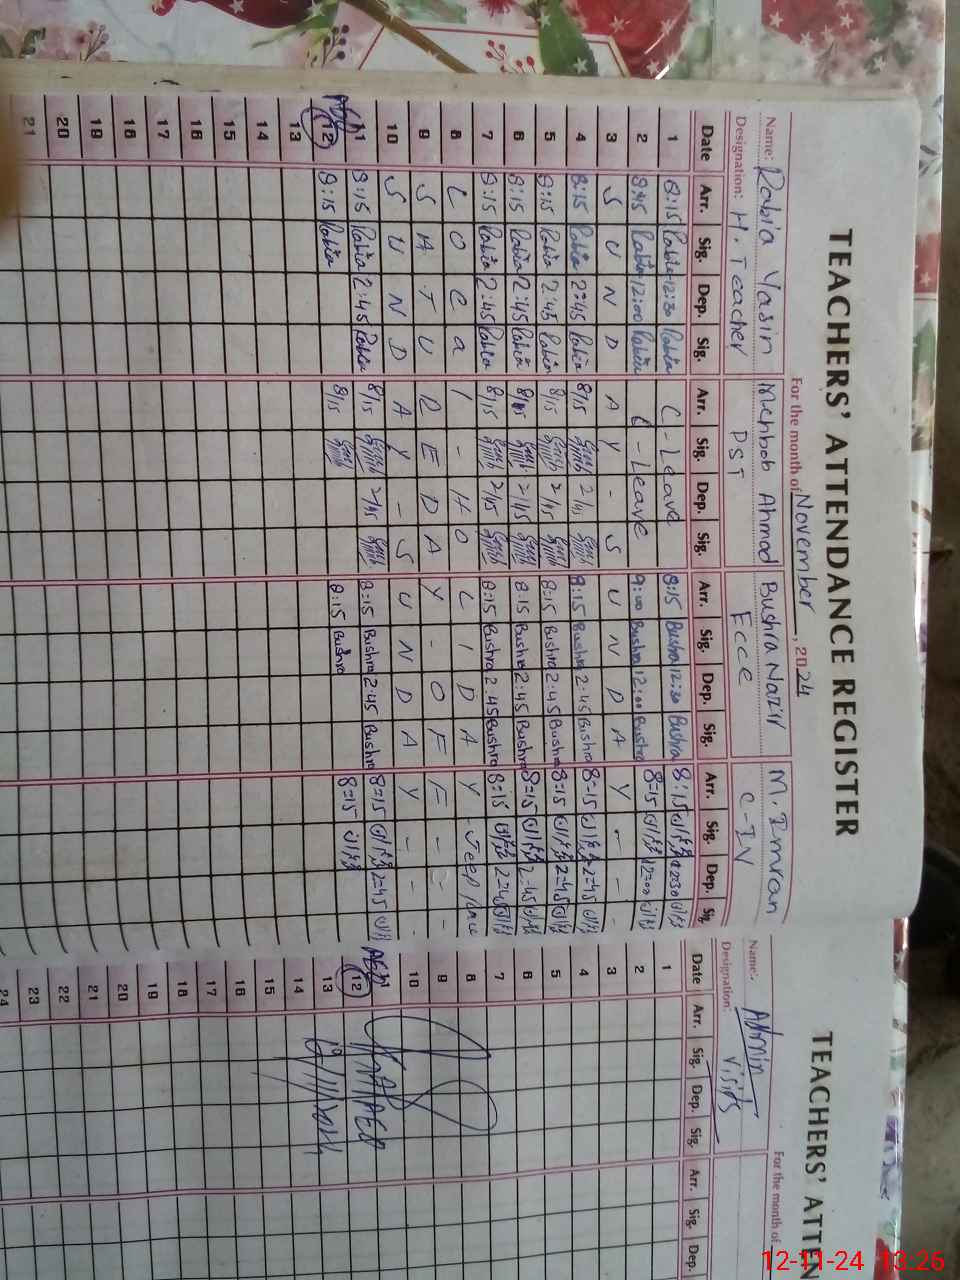 TEACHERS' ATTENDANCE REGISTER
For the month of November, 2024
Name: Rabia Yasin Mehbob Ahmad Bushra Nazir M. Imran
Designation: H. Teacher PST Ecce C-IV
Date Arr. Sig. Dep. Sig. Arr. Sig. Dep. Sig. Arr. Sig. Dep. Sig. Arr. Sig. Dep. Sig.
1 8:15 Rabia 12:30 Rabia C - Leave 8:15 Bushra 12:30 Bushra 8:15 12=30
2 8:15 Rabia 12:00 Rabia C - Leave 9:00 Bushra 12:00 Bushra 8=15 12=00
3 S U N D A Y - S U N D A Y - - -
4 8:15 Rabia 2:45 Rabia 8/15 2/45 8:15 Bushra 2:45 Bushra 8=15 2=45
5 8:15 Rabia 2:45 Rabia 8/15 2/45 8:15 Bushra 2:45 Bushra 8=15 2=45
6 8:15 Rabia 2:45 Rabia 8/15 2/45 8:15 Bushra 2:45 Bushra 8=15 2=45
7 8:15 Rabia 2:45 Rabia 8/15 2/45 8:15 Bushra 2:45 Bushra 8:15
8 L O C a l - H O L I D A Y -
9 S A T U R E D A Y - O F F - - -
10 S U N D A Y - S U N D A Y - - -
11 8:15 Rabia 2:45 Rabia 8/15 2/45 8:15 Bushra 2:45 Bushra 8=15 2=45
12 8:15 Rabia 8/15 8:15 Bushra 8=15
13
14
15
16
17
18
19
20
21
TEACHERS' ATTEN
For the month of
Name: Admin
Designation: Visits
Date Arr. Sig. Dep. Sig. Arr. Sig. Dep.
1
2
3
4
5
6
7
8
9
10
12
13
14
15
16
17
18
19
20
21
22
23
24
12-11-24 13:26